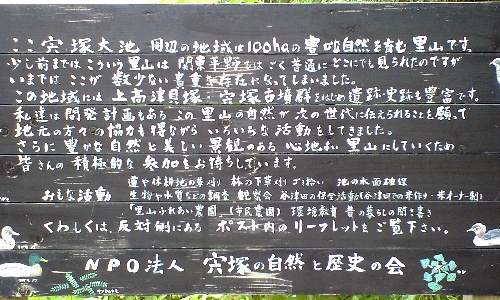 ここ 宍塚大池 周辺の地域は100haの豊かな自然を育む里山です。
少し前まではこういう里山は 関東平野ではごく普通にどこにでも見られたのですが
いまでは ここが 数少ない貴重な存在になってしまいました。
この地域には 上高津貝塚・宍塚古墳群をはじめ遺跡史跡も豊富です。
私達は開発計画もある この里山の自然が次の世代に伝えられることを願って
地元の方々の協力を得ながら いろいろな活動をしてきました。
さらに豊かな自然と美しい景観のある 心地よい里山にしていくため
皆さんの 積極的な 参加をお待ちしています。
おもな活動 道や休耕地の草刈り 林の下草刈り ゴミ拾い 池の水面確保
生物や水質などの調査 観察会 谷津田の保全活動(谷津田での米作り・米オーナー制)
「里山ふれあい農園」(市民農園) 環境教育 昔の暮らしの聞き書き
くわしくは、反対側にある ポスト内の リーフレットをご覧下さい。
NPO法人 宍塚の自然と歴史の会